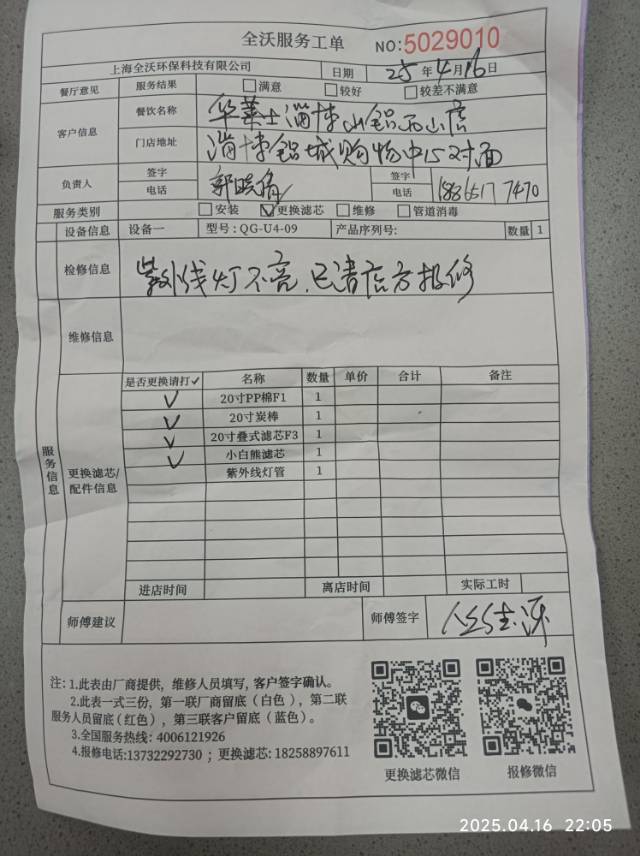 全沃服务工单 NO:5029010
上海全沃环保科技有限公司 日期 25年4月16日
餐厅意见 服务结果 □满意 □较好 □较差不满意
客户信息 餐饮名称 华莱士淄博山铝西山店
门店地址 淄博铝城购物中心对面
负责人 签字 签字
电话 电话
服务类别 □安装 ☑更换滤芯 □维修 □管道消毒
设备信息 设备一 型号:QG-U4-09 产品序列号: 数量 1
检修信息 紫外线灯不亮,已请店方报修
维修信息
服务信息
是否更换请打✓ 名称 数量 单价 合计 备注
✓ 20寸PP棉F1 1
✓ 20寸炭棒 1
✓ 20寸叠式滤芯F3 1
✓ 小白熊滤芯 1
紫外线灯管 1
更换滤芯/
配件信息
进店时间 离店时间 实际工时
师傅建议 师傅签字
注:1.此表由厂商提供,维修人员填写,客户签字确认。
2.此表一式三份,第一联厂商留底(白色),第二联
服务人员留底(红色),第三联客户留底(蓝色)。
3.全国服务热线:4006121926
4.报修电话:13732292730;更换滤芯:18258897611
更换滤芯微信 报修微信
2025.04.16 22:05